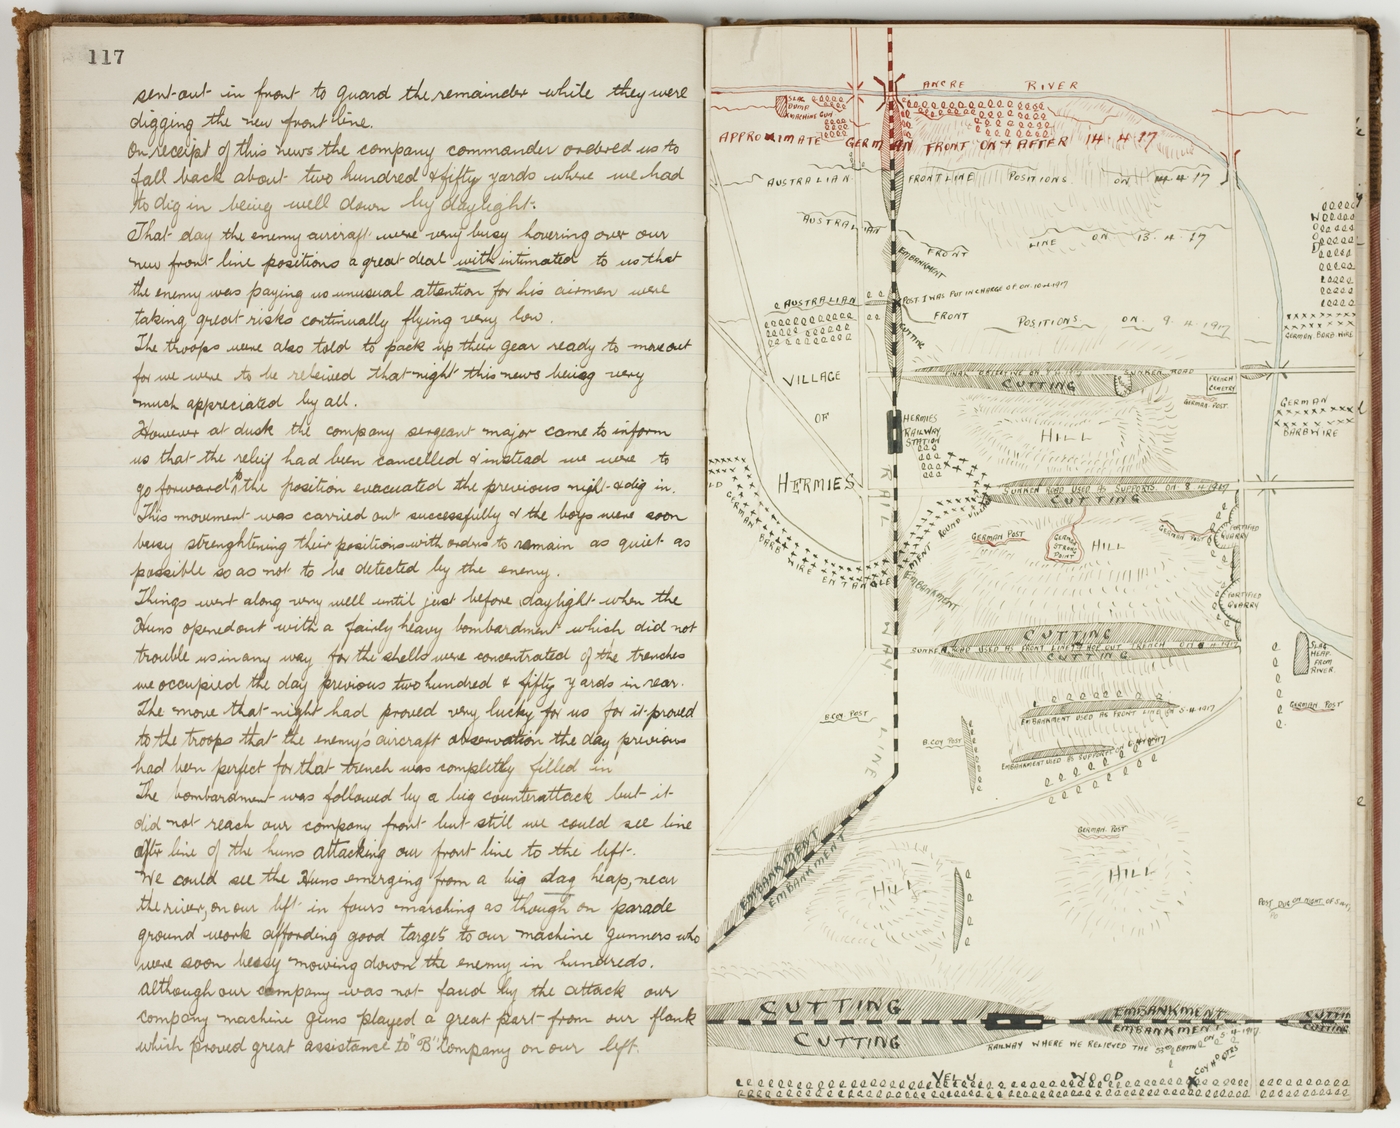 117
sent out in front to guard the remainder while they were
digging the new front line.
On receipt of this news the company commander ordered us to
fall back about two hundred & fifty yards where we had
to dig in being well down by daylight.
That day the enemy aircraft were very busy hovering over our
new front line positions a great deal with intimated to us that
the enemy was paying us unusual attention for his airmen were
taking great risks continually flying very low.
The troops were also told to pack up their gear ready to move out
for we were to be releived that night this news being very
much appreciated by all.
However at dusk the company sergeant major came to inform
us that the relief had been cancelled & instead we were to
go forward to the position evacuated the previous night & dig in.
This movement was carried out successfully & the boys were soon
busy strenghtening their positions with orders to remain as quiet as
possible so as not to be detected by the enemy.
Things went along very well until just before daylight when the
Huns opened out with a fairly heavy bombardment which did not
trouble us in any way for the shells were concentrated of the trenches
we occupied the day previous two hundred & fifty yards in rear.
The move that night had proved very lucky for us for it proved
to the troops that the enemy's aircraft observation the day previous
had been perfect for that trench was completly filled in
The bombardment was followed by a big counterattack but it
did not reach our company front but still we could see line
after line of the huns attacking our front line to the left.
We could see the Huns emerging from a big slag heap, near
the river, on our left in fours marching as though on parade
ground work affording good targets to our machine gunners who
were soon bussy mowing down the enemy in hundreds.
although our company was not faced by the attack our
company machine guns played a great part from our flank
which proved great assistance to "B" Company on our left.
ANCRE RIVER
SLAG DUMP MACHINE GUN
APPROXIMATE GERMAN FRONT ON & AFTER 14.4.17
AUSTRALIAN FRONT LINE POSITIONS ON 14.4.17
AUSTRALIAN FRONT LINE ON 13.4.17
EMBANKMENT
POST I WAS PUT IN CHARGE OF ON 10.4.1917
AUSTRALIAN FRONT POSITIONS. ON. 9.4.1917
CUTTING
WOOD
GERMAN. BARB WIRE
SUNKEN ROAD
CUTTING
FRENCH CEMETRY
GERMAN POST
GERMAN
BARB WIRE
VILLAGE
OF
HERMIES
HERMIES RAILWAY STATION
HILL
SUNKEN ROAD USED AS SUPPORTS. ON. 8.4.1917
CUTTING
GERMAN BARB WIRE ENTANGLEMENT ROUND VILLAGE
RAILWAY LINE
GERMAN POST
GERMAN STRONG POINT
HILL
GERMAN POST
FORTIFIED QUARRY
FORTIFIED QUARRY
EMBANKMENT
CUTTING
CUTTING
SLAG HEAP FROM RIVER.
GERMAN POST
B.COY POST
EMBANKMENT USED AS FRONT LINE ON 5.4.1917
B.COY POST
EMBANKMENT USED AS SUPPORTS
GERMAN. POST
HILL
HILL
EMBANKMENT
EMBANKMENT
POST DUG ON NIGHT OF
CUTTING
CUTTING
EMBANKMENT
EMBANKMENT
CUTTIN
CUTTING
RAILWAY WHERE WE RELIEVED THE 53RD BATTN ON 5-4-1917
COY HD QTRS
VELU WOOD